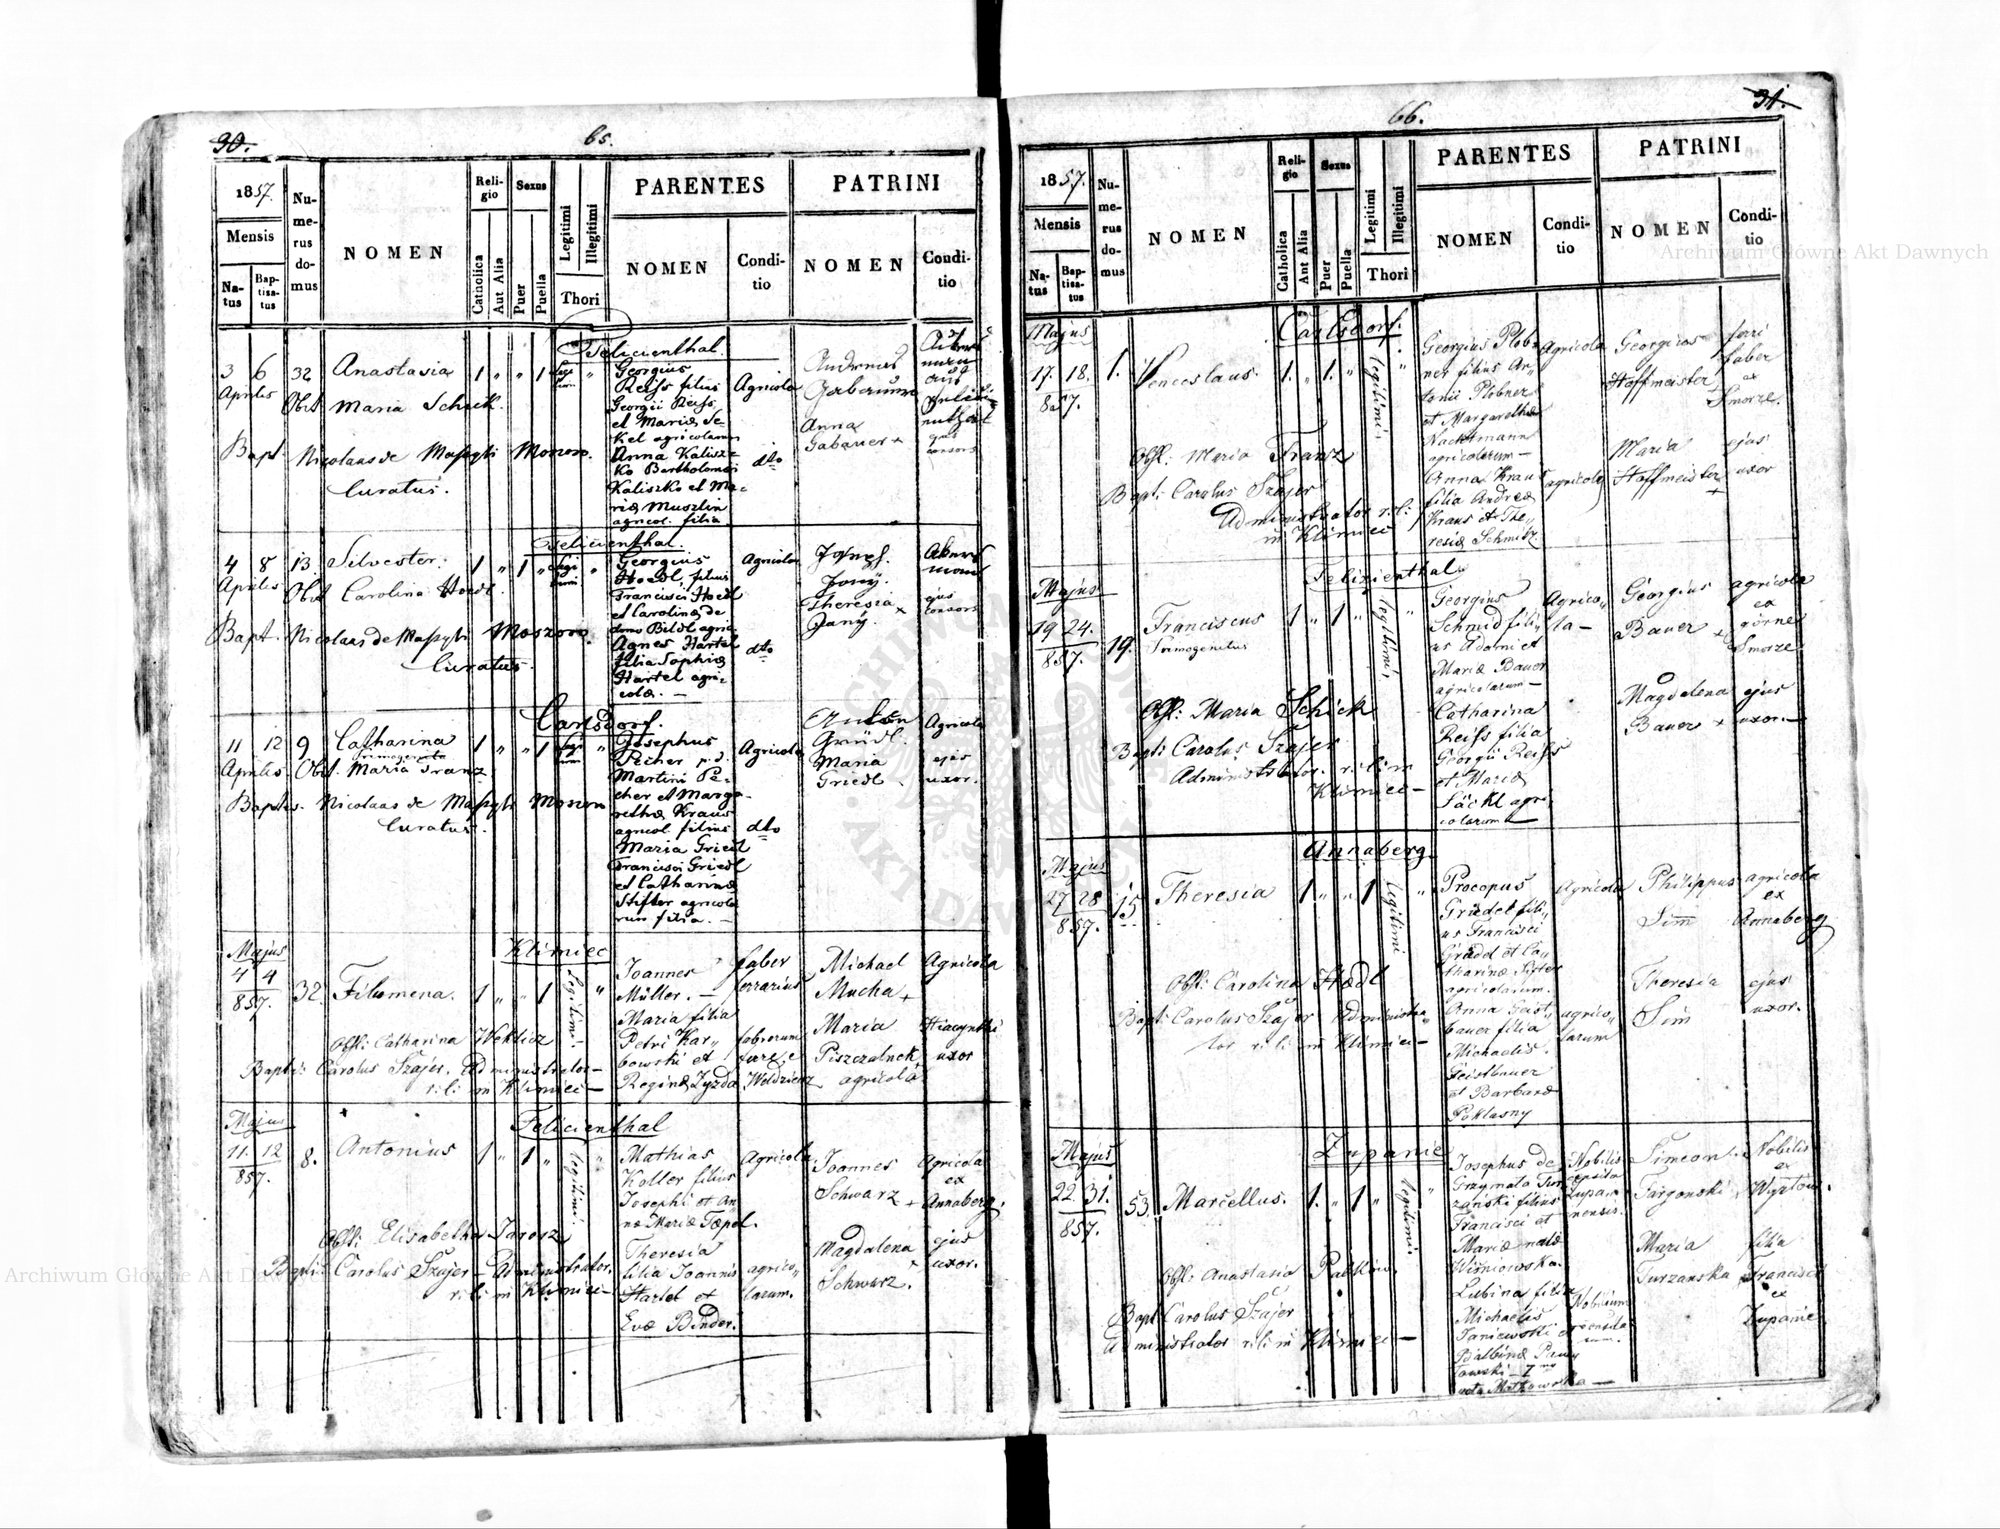 30.
65.
1857.
Mensis
Natus
Baptisatus
Numerus domus
NOMEN
Religio
Catholica
Aut Alia
Sexus
Puer
Puella
Legitimi
Illegitimi
Thori
PARENTES
NOMEN
Conditio
PATRINI
NOMEN
Conditio
Felicienthal.
3 6 32 Anastasia 1 " " 1 "
Aprilis Obst. Maria Schick.
Bapt. Nicolaus de Moszoro
Curatus.
Georgius
Reiss filius
Georgii Reiss
et Mariæ Se-
kel agricolarum
Anna Kalisz-
ko Bartholomei
Kaliszko et Ma-
riæ Muszlin
agricol. filia
Agricola
dto
Andreas
Gabauer
Anna
Gabauer +
ejus
consors
Felicienthal.
4 8 13 Silvester. 1 " 1 " "
Aprilis Obst Carolina Hoedl.
Bapt. Nicolaus de Moszoro.
Curatus.
Georgius
Hoedl, filius
Francisci Hoedl
et Carolinæ de
domo Bildl agric
Agnes Hartel
filia Sophiæ
Hartel agri-
colæ. —
Agricola
dto
Joseph.
Jany.
Theresia +
Jany.
ejus
consors
Carlsdorf.
11 12 9 Catharina 1 " " 1 "
primogenita
Aprilis. Obst. Maria Franz
Baptis. Nicolaus de Moszoro
Curatus.
Josephus
Pecher
Martini Pe-
cher et Marga-
rethæ Kraus
agricol. filius
Maria Griedl
Francisci Griedl
et Catharinæ
Stifter agricola
rum filia. —
Agricola
dto
Griedl.
Maria
Griedl
Agricola
ejus
uxor.
Majus
4 4
857.
Klimiec
32. Filomena. 1 " " 1 Legitimi "
Obst: Catharina Weklicz
Bapti: Carolus Szajer. Administrator—
r: l: in Klimiec—
Joannes
Müller. —
Maria filia
Petri Kar"
bowski et
Reginæ Zyzda
faber
ferrarius
fabrorum
Michael
Mucha +
Maria
Piszczalnek
agricola
Agricola
Hiacynthi
uxor
Majus
11. 12
857.
Felicienthal
8. Antonius 1 " 1 " Legitimi. "
Obst: Elisabetha Jarosz
Bapti: Carolus Szajer— Administrator.
r: l: in Klimiec—
Mathias
Koller filius
Josephi et An
næ Mariæ Tæpel.
Theresia
filia Joannis
Hartel et
Evæ Binder.
Agricola
agrico"
larum.
Joannes
Schwarz +
Magdalena
Schwarz.
Agricola
ex
Annaberg.
ejus
uxor.
31.
66.
1857.
Mensis
Natus
Baptisatus
Numerus domus
NOMEN
Religio
Catholica
Aut Alia
Sexus
Puer
Puella
Legitimi
Illegitimi
Thori
PARENTES
NOMEN
Conditio
PATRINI
NOMEN
Conditio
Majus
17. 18.
857.
Carlsdorf.
1. Venceslaus. 1. " 1. " Legitimi "
Obst: Maria Franz
Bapti: Carolus Szajer
Administrator r: l:
in Klimiec
Georgius Plob"
ner filius An"
tonii Plobner
et Margarethæ
Nachtmann
agricolarum—
Anna Kraus
filia Andreæ
Kraus et The"
resiæ Schmitz.
Agricola
agricola
Georgius
Hoffmeister
Maria
Hoffmeister
+
ferri
faber
ex
Smorze.
ejus
uxor
Majus
19 24.
857.
Felizienthal.
19. Franciscus 1 " 1 " Legitimi "
Primogenitus
Obst: Maria Schick
Bapti: Carolus Szajer
Administrator. r: l: in
Klimiec—
Georgius
Schmid fili"
us Adami et
Mariæ Bauer
agricolarum—
Catharina
Reiss filia
Georgii Reiss
et Mariæ
Säckl agri
colarum—
Agrico"
la—
Georgius
Bauer +
Magdalena
Bauer +
agricola
ex
górne
Smorze
ejus
uxor.—
Majus
27 28
857.
Annaberg.
15 Theresia 1 " " 1 Legitimi "
Obst: Carolina Hædl
Bapti: Carolus Szajer Administra"
tor r: l: in Klimiec—
Procopus
Griedel fili"
us Francisci
Griedl et Ca"
tharinæ Stifter
agricolarum.
Anna Geist"
bauer filia
Michaelis.
Geistbauer
et Barbaræ
Poklasny
Agricola
agrico"
larum
Philippus
Sim
Theresia
Sim
agricola
ex
Annaberg
ejus
uxor.
Majus
22. 31.
857.
Zupanie
53 Marcellus. 1. " 1 " Legitimi "
Obst: Anastasia
Bapt Carolus Szajer
Administrator r: l: in Klimiec—
Josephus de
Grzymała Tur
zański filius
Francisci et
Mariæ natæ
Wiśniowska.
Lubina filia
Michaelis
Janiewski et
Balbinæ
Nobilis
Simeon
Targonski
Maria
Turzanska
Nobilis
ex
filia
Francisci
ex
Zupanie
Archiwum Główne Akt Dawnych
Archiwum Główne Akt Dawnych
ARCHIWUM GŁÓWNE
AKT DAWNYCH